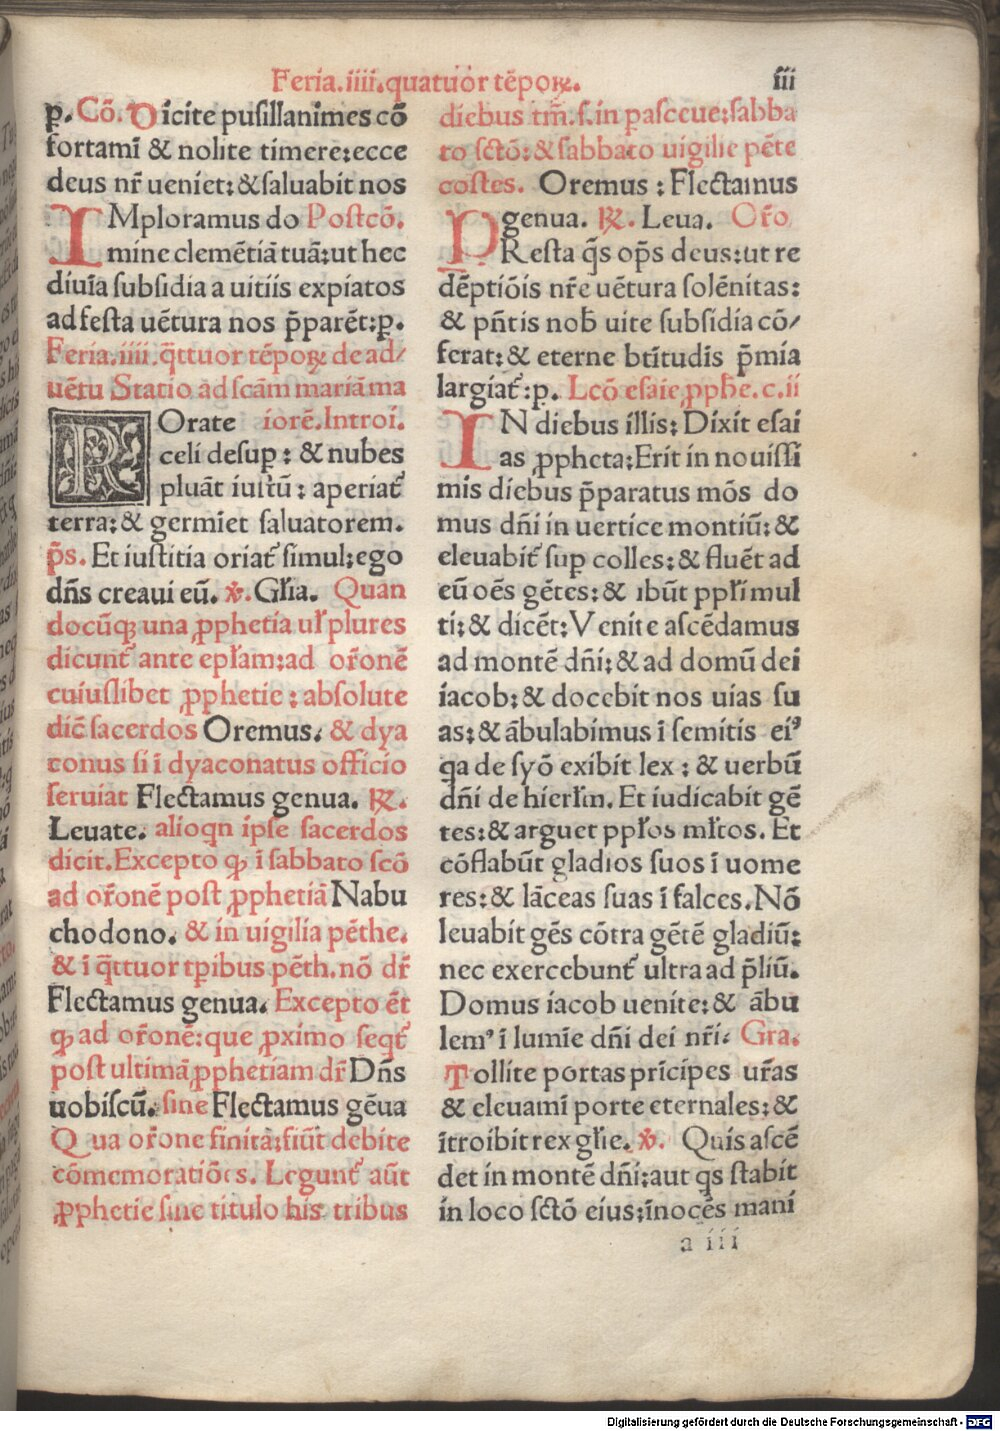 Feria.iiii.quatuor tēpoꝝ.
iii
p. Cō. Dicite pusillanimes cō
fortamī & nolite timere:ecce
deus nr̄ ueniet:&saluabit nos
IMploramus do Postcō.
mine clemētiā tuā:ut hec
diuīa subsidia a uitiis expiatos
ad festa uētura nos p̄parēt:p.
Feria.iiii.q̄ttuor tēpoꝝ de ad/
uētu Statio ad scām mariā ma
ROrate iorē.Introi.
celi desuꝑ: & nubes
pluāt iustū: aperiat᷑
terra:& germiet saluatorem.
p̄s. Et iustitia oriat᷑ simul:ego
dn̄s creaui eū. ℣. Glīa. Quan
docūqꝫ una ꝓphetia ul̄ plures
dicunt᷑ ante epl̄am:ad or̄onē
cuiuslibet ꝓphetie: absolute
dic̄ sacerdos Oremus. & dya
conus si ī dyaconatus officio
seruiat Flectamus genua. ℟.
Leuate. alioqn ipse sacerdos
dicit.Excepto qꝫ ī sabbato scō
ad or̄onē post ꝓphetiā Nabu
chodono. & in uigilia pēthe.
& ī q̄ttuor tꝑibus pēth.nō dr̄
Flectamus genua. Excepto ēt
qꝫ ad or̄onē:que ꝓximo seqt᷑
post ultimā ꝓphetiam dr̄ Dn̄s
uobiscū. sine Flectamus gēua
Qua or̄one finita:fiūt debite
cōmemoratiōes. Legunt᷑ aūt
ꝓphetie sine titulo his tribus
diebus tm̄.s.in pasceue:sabba
to sctō:&sabbato uigilie pēte
costes. Oremus: Flectamus
genua. ℟. Leua. Or̄o
PResta q̄s op̄s deus:ut re
dēptiōis nr̄e uētura solēnitas:
& pn̄tis nob̄ uite subsidia cō/
ferat:& eterne bt̄itudis p̄mia
largiat᷑:p. Lcō esaie ꝓph̄e.c.ii
IN diebus illis: Dixit esai
as ꝓpheta:Erit in nouissi
mis diebus p̄paratus mōs do
mus dn̄i in uertice montiū:&
eleuabit᷑ suꝑ colles:& fluēt ad
eū oēs gētes:& ibūt ppl̄i mul
ti:& dicēt:Venite ascēdamus
ad montē dn̄i:& ad domū dei
iacob:& docebit nos uias su
as:& ābulabimus ī semitis eiꝰ
qa de syō exibit lex: & uerbū
dn̄i de hierl̄m. Et iudicabit gē
tes:& arguet ppl̄os ml̄tos. Et
cōflabūt gladios suos ī uome
res:& lāceas suas ī falces.Nō
leuabit gēs cōtra gētē gladiū:
nec exercebunt᷑ ultra ad p̄liū.
Domus iacob uenite:& ābu
lemꝰ ī lumīe dn̄i dei nr̄i. Gra.
Tollite portas prīcipes ur̄as
& eleuamī porte eternales:&
ītroibit rex gl̄ie. ℣. Quis ascē
det in montē dn̄i:aut qs stabit
in loco sctō eius:īnocēs mani
a iii
Digitalisierung gefördert durch die Deutsche Forschungsgemeinschaft - DFG